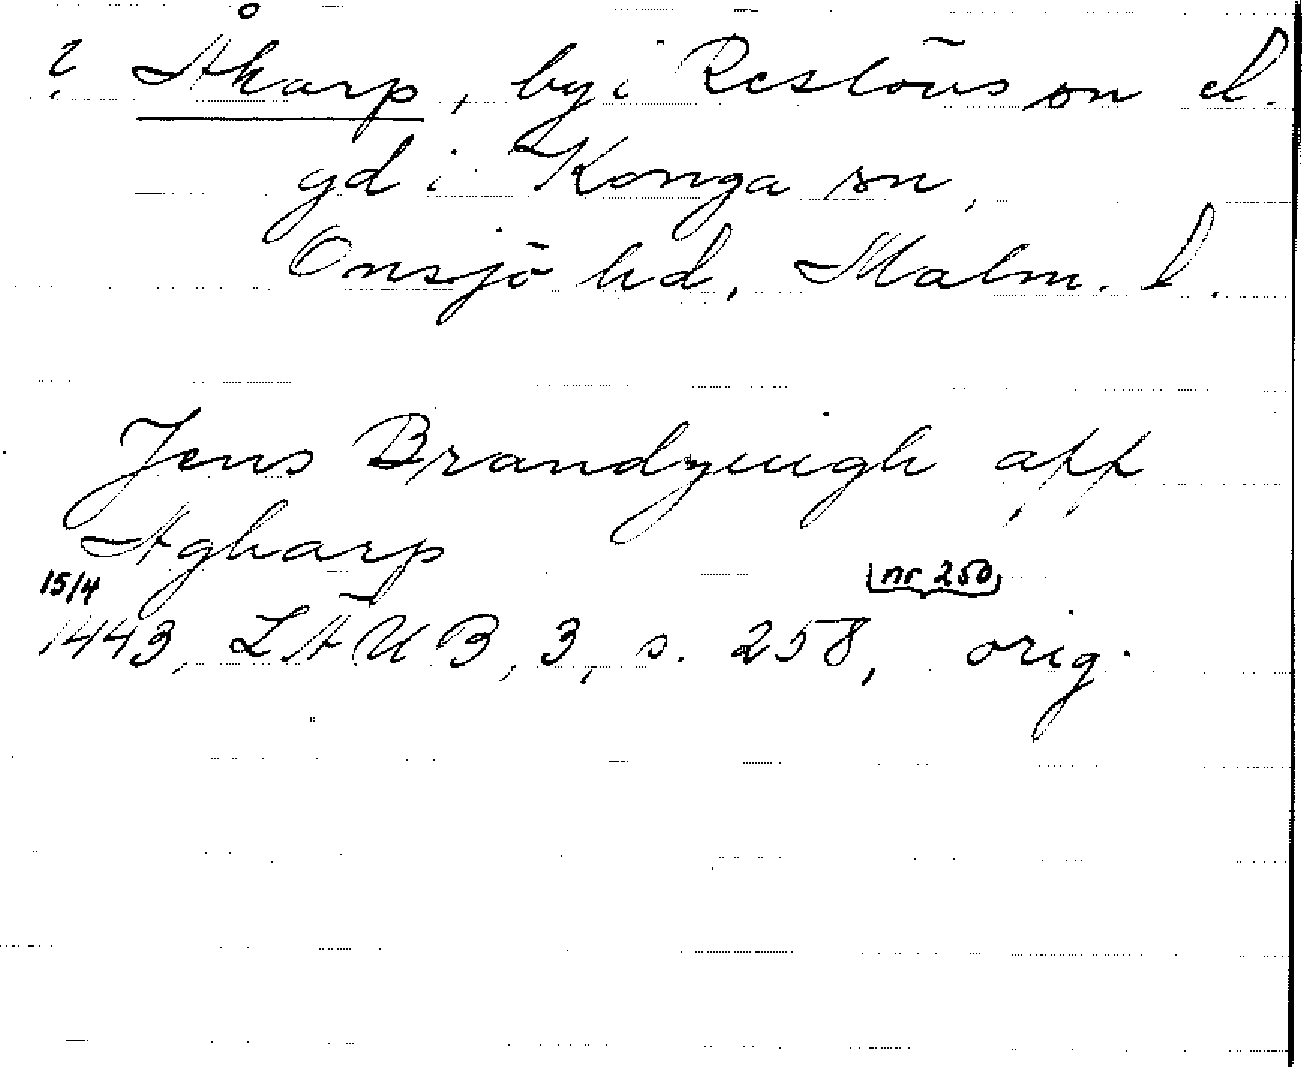 ? Åkarp, by i Reslövs sn el.
gd i Konga sn,
Onsjö hd, Malm. l.
Jens Brandzuigh aff
Agharp
15/4 nr 250
1443, LÄUB, 3, s. 258, orig.